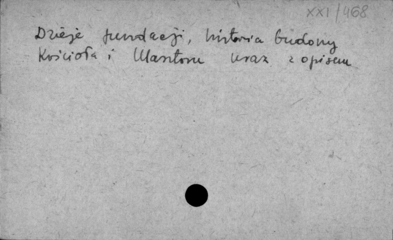 XXI/468
Dzieje fundacji, historia budowy
Kościoła i klasztoru wraz z opisem